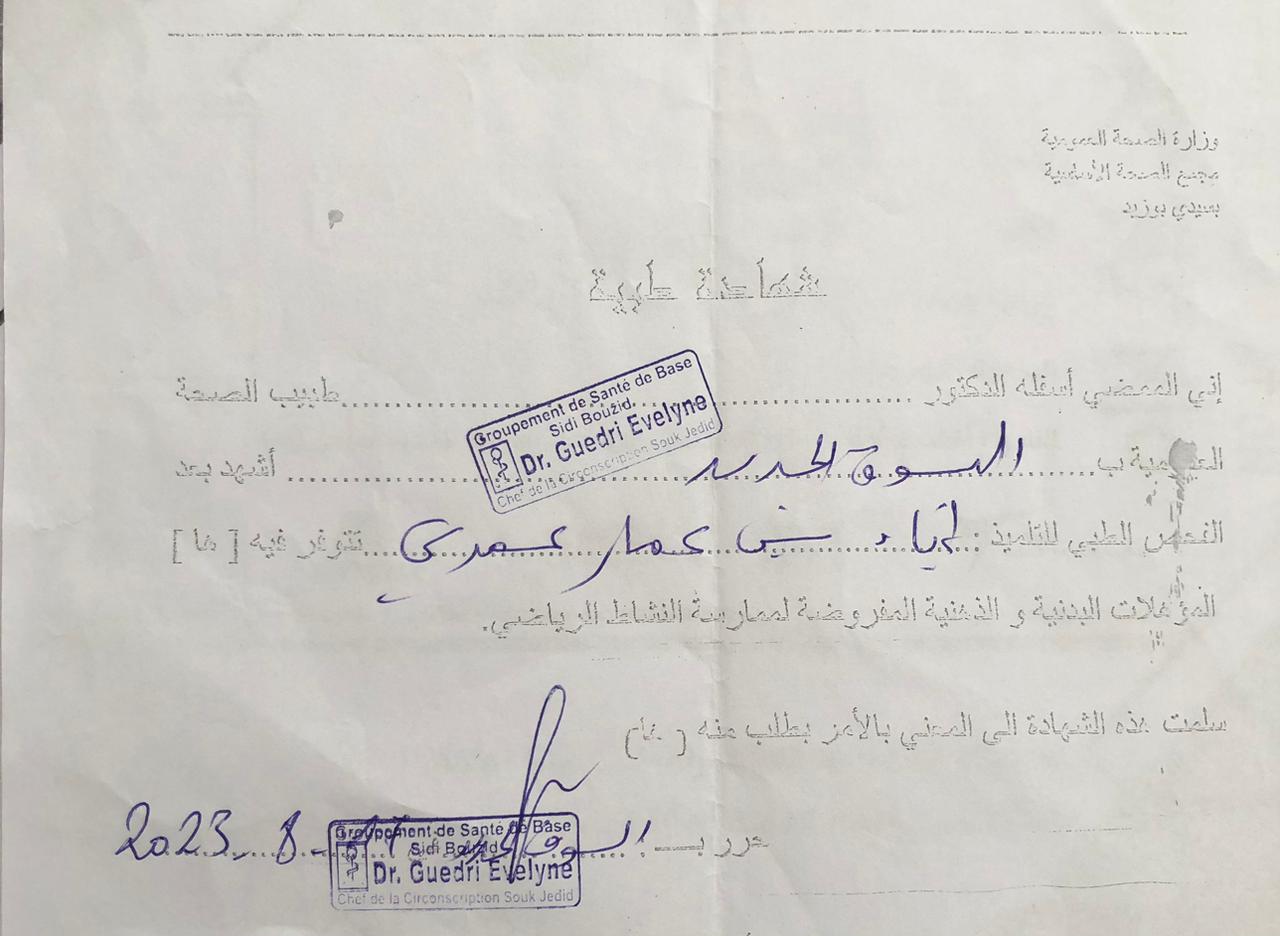 وزارة الصحة العمومية
مجمع الصحة الأساسية
بسيدي بوزيد
شهادة طبية
إني الممضي أسفله الدكتور .......... طبيب الصحة
Groupement de Santé de Base
Sidi Bouzid
Dr. Guedri Evelyne
Chef de la Circonscription Souk Jedid
العمومية ب..... السوق الجديد .......... أشهد بعد
الفحص الطبي للتلميذ : بن عمار عمري ... تتوفر فيه [ ها ]
المؤهلات البدنية و الذهنية المفروضة لممارسة النشاط الرياضي.
سلمت هذه الشهادة الى المعني بالأمر بطلب منه ( ها)
حرر بـ : السوق الجديد 2023 - 8 -
Groupement de Santé de Base
Sidi Bouzid
Dr. Guedri Evelyne
Chef de la Circonscription Souk Jedid